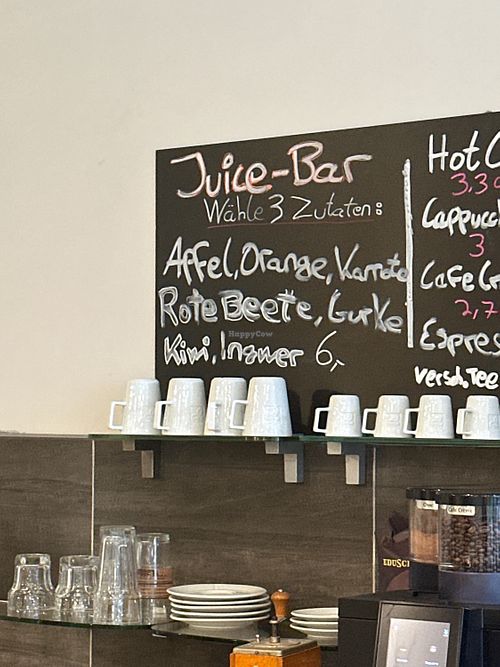 Juice-Bar
Wähle 3 Zutaten:
Apfel, Orange, Karotte
Rote Beete, Gurke
Kiwi, Ingwer 6,-
Hot C
3,3
Cappucc
3
Cafe Cr
2,7
Espres
versch. Tee
HappyCow
Cafe Crema
EDUSC